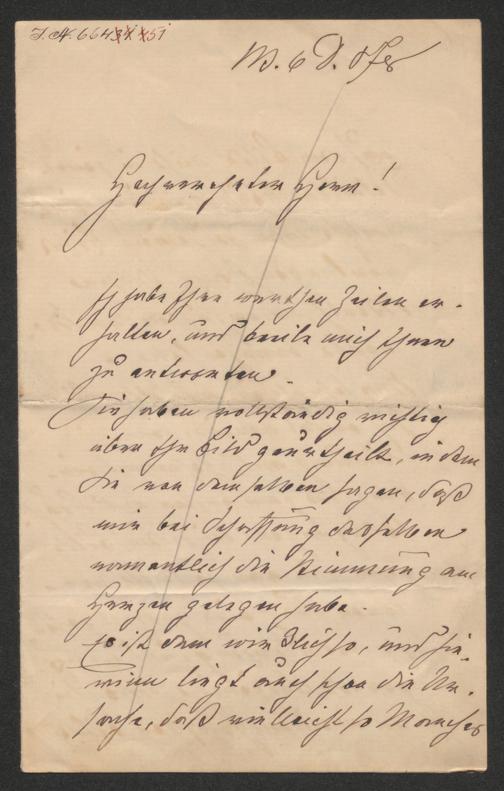 I. N. 66434 451
W. 6 D. 878
Hochverehrter Herr!
Ich habe Ihre werthen Zeilen er-
halten, und beeile mich Ihnen
zu antworten.
Sie haben vollständig richtig
über Ihr Bild geurtheilt, indem
Sie von demselben sagen, daß
mir bei Schaffung desselben
namentlich die Stimmung am
Herzen gelegen habe.
Es ist dem wirklich so, und hie-
rinn liegt auch schon die Ur-
sache, daß vielleicht so Manches